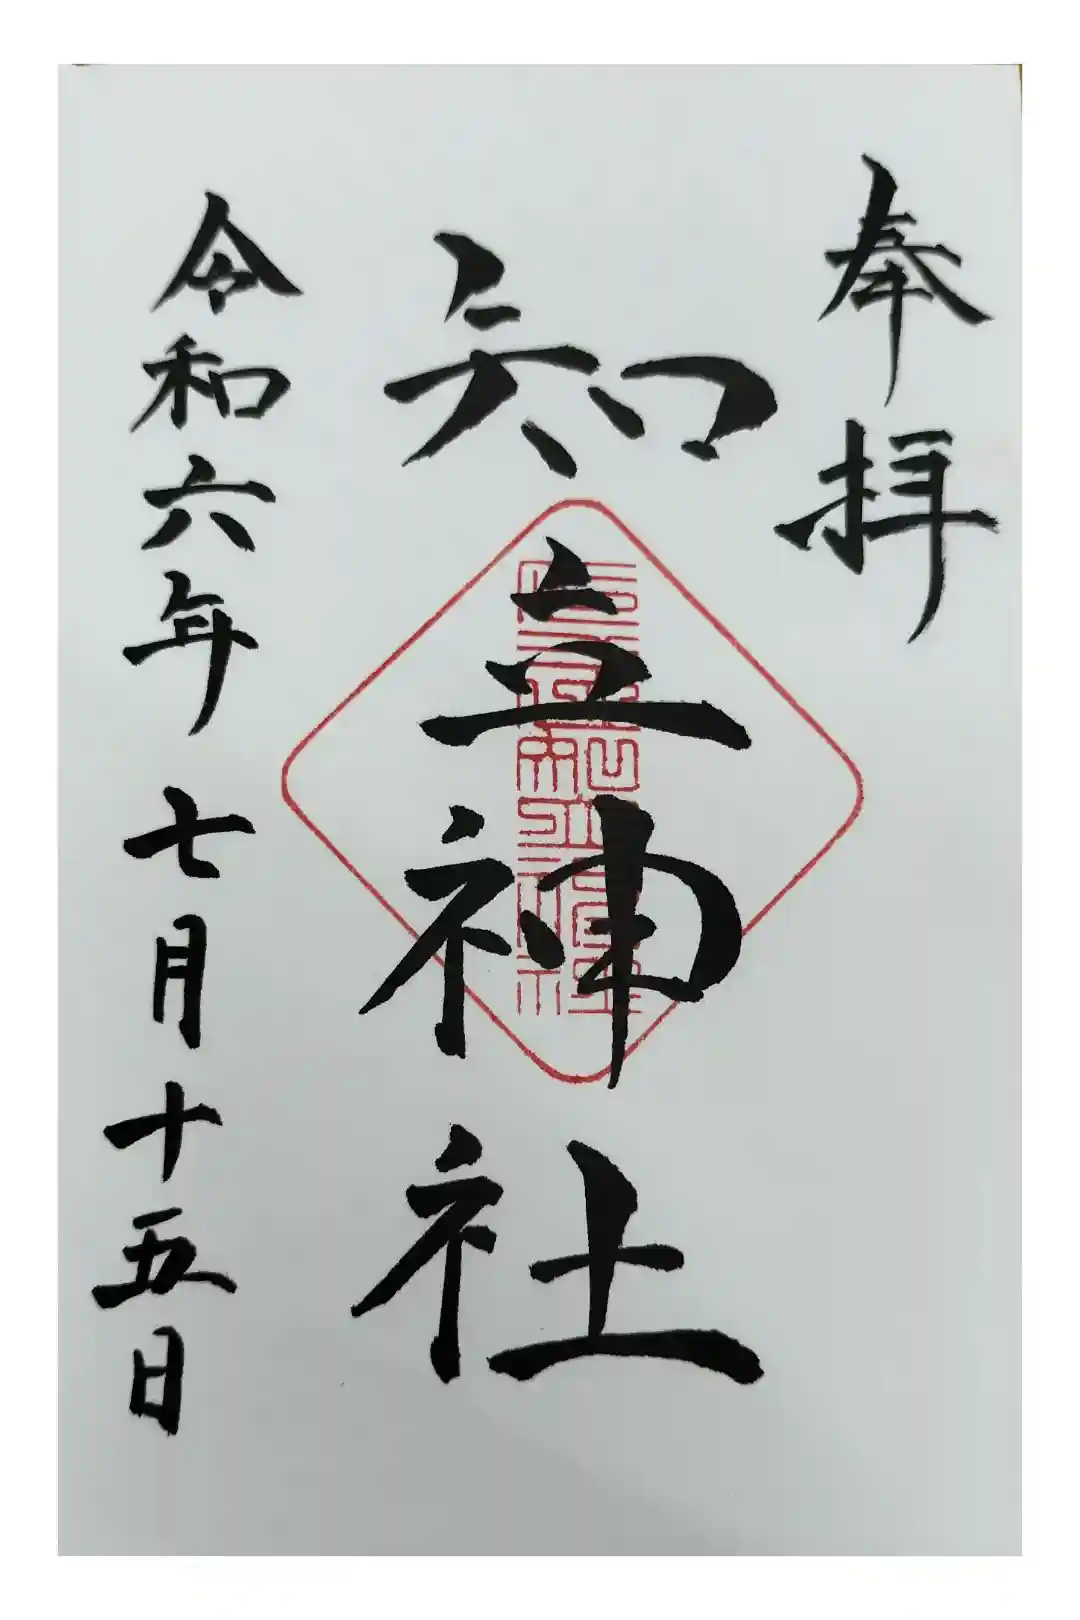 奉拝
知立神社
令和六年七月十五日